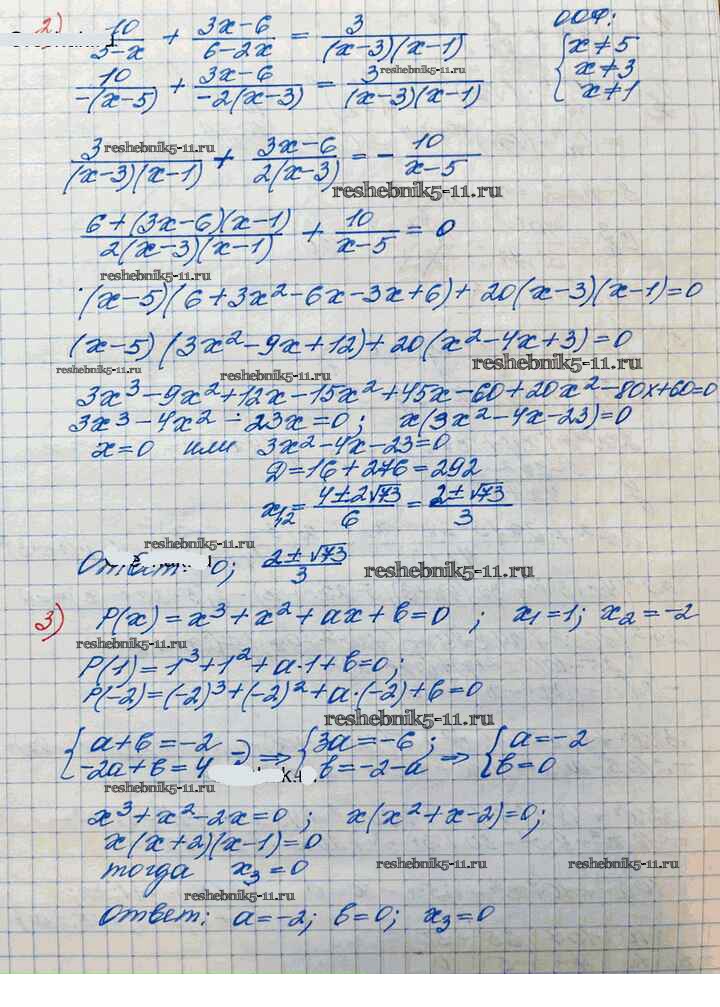 2) 10/(5-x) + (3x-6)/(6-2x) = 3/((x-3)(x-1)) ООФ:
10/(-(x-5)) + (3x-6)/(-2(x-3)) = 3/((x-3)(x-1)) {x≠5 x≠3 x≠1
reshebnik5-11.ru
3/((x-3)(x-1)) + (3x-6)/(2(x-3)) = - 10/(x-5)
reshebnik5-11.ru
reshebnik5-11.ru
(6+(3x-6)(x-1))/(2(x-3)(x-1)) + 10/(x-5) = 0
reshebnik5-11.ru
(x-5)(6+3x²-6x-3x+6)+20(x-3)(x-1)=0
(x-5)(3x²-9x+12)+20(x²-4x+3)=0
reshebnik5-11.ru
reshebnik5-11.ru
reshebnik5-11.ru
3x³-9x²+12x-15x²+45x-60+20x²-80x+60=0
3x³-4x²-23x=0; x(3x²-4x-23)=0
x=0 или 3x²-4x-23=0
Д=16+276=292
x1,2 = (4±2√73)/6 = (2±√73)/3
reshebnik5-11.ru
Ответ: 0; (2±√73)/3
reshebnik5-11.ru
3) P(x)=x³+x²+ax+b=0 ; x₁=1; x₂=-2
reshebnik5-11.ru
P(1)=1³+1²+a·1+b=0;
P(-2)=(-2)³+(-2)²+a·(-2)+b=0
reshebnik5-11.ru
{a+b=-2 -2a+b=4 -) ⇒ {3a=-6; b=-2-a ⇒ {a=-2 b=0
reshebnik5-11.ru
x³+x²-2x=0 ; x(x²+x-2)=0;
x(x+2)(x-1)=0
тогда x₃=0
reshebnik5-11.ru
reshebnik5-11.ru
reshebnik5-11.ru
Ответ: a=-2; b=0; x₃=0